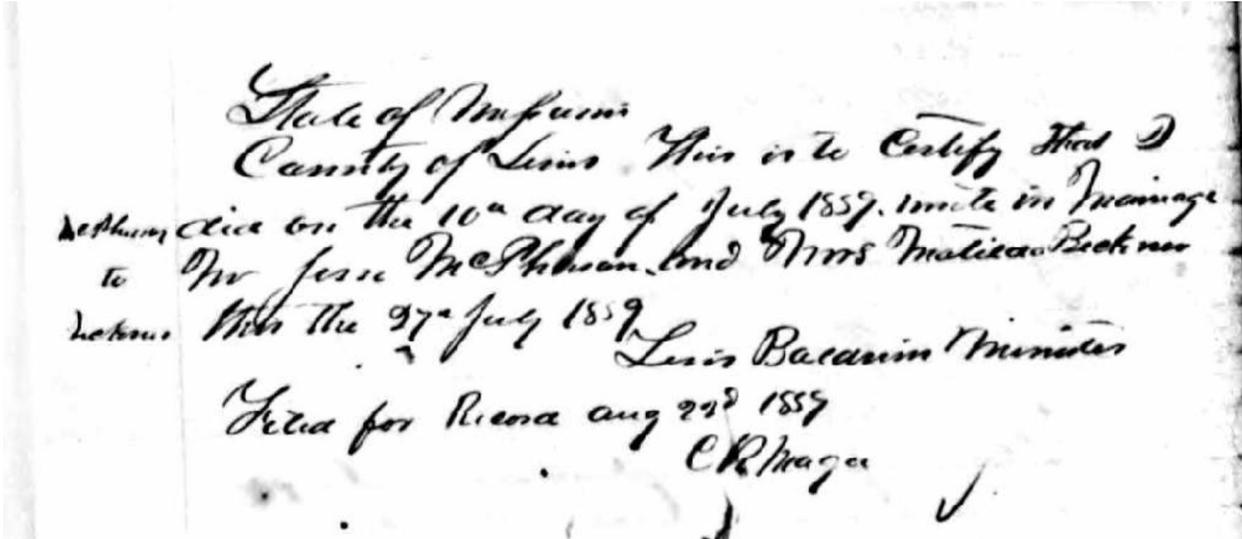 State of Missouri
County of Lewis This is to Certify that I
did on the 10th day of July 1859. unite in Marriage
to Mr Jesse McPherson and Mrs Matilda
this the 27th July 1859
Lewis Baldwin Minister
Filed for Record Aug 22d 1859
C R